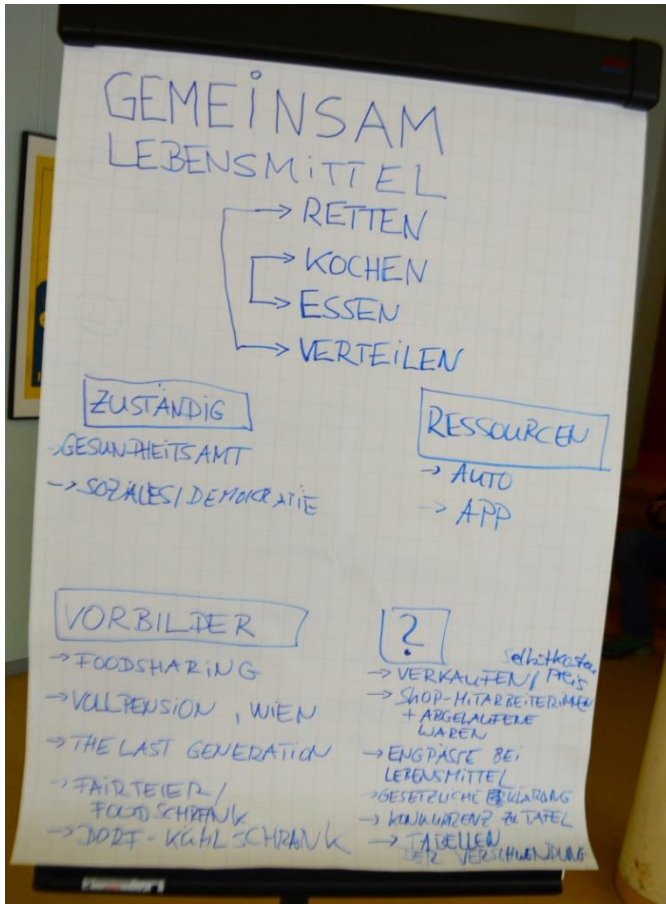 GEMEINSAM
LEBENSMITTEL
→ RETTEN
→ KOCHEN
→ ESSEN
→ VERTEILEN
ZUSTÄNDIG
→ GESUNDHEITSAMT
→ SOZIALES/DEMOKRATIE
RESSOURCEN
→ AUTO
→ APP
VORBILDER
→ FOODSHARING
→ VOLLPENSION, WIEN
→ THE LAST GENERATION
→ FAIRTEIER/
FOODSCHRANK
→ DORF-KÜHLSCHRANK
?
Selbstkosten
→ VERKAUFEN/ Preis
→ SHOP-MITARBEITERINNEN
+ ABGELAUFENE
WAREN
→ ENGPÄSSE BEI
LEBENSMITTEL
→ GESETZLICHE KLÄRUNG
→ KONKURRENZ ZU TAFEL
→ TABELLEN
DER VERSCHWENDUNG